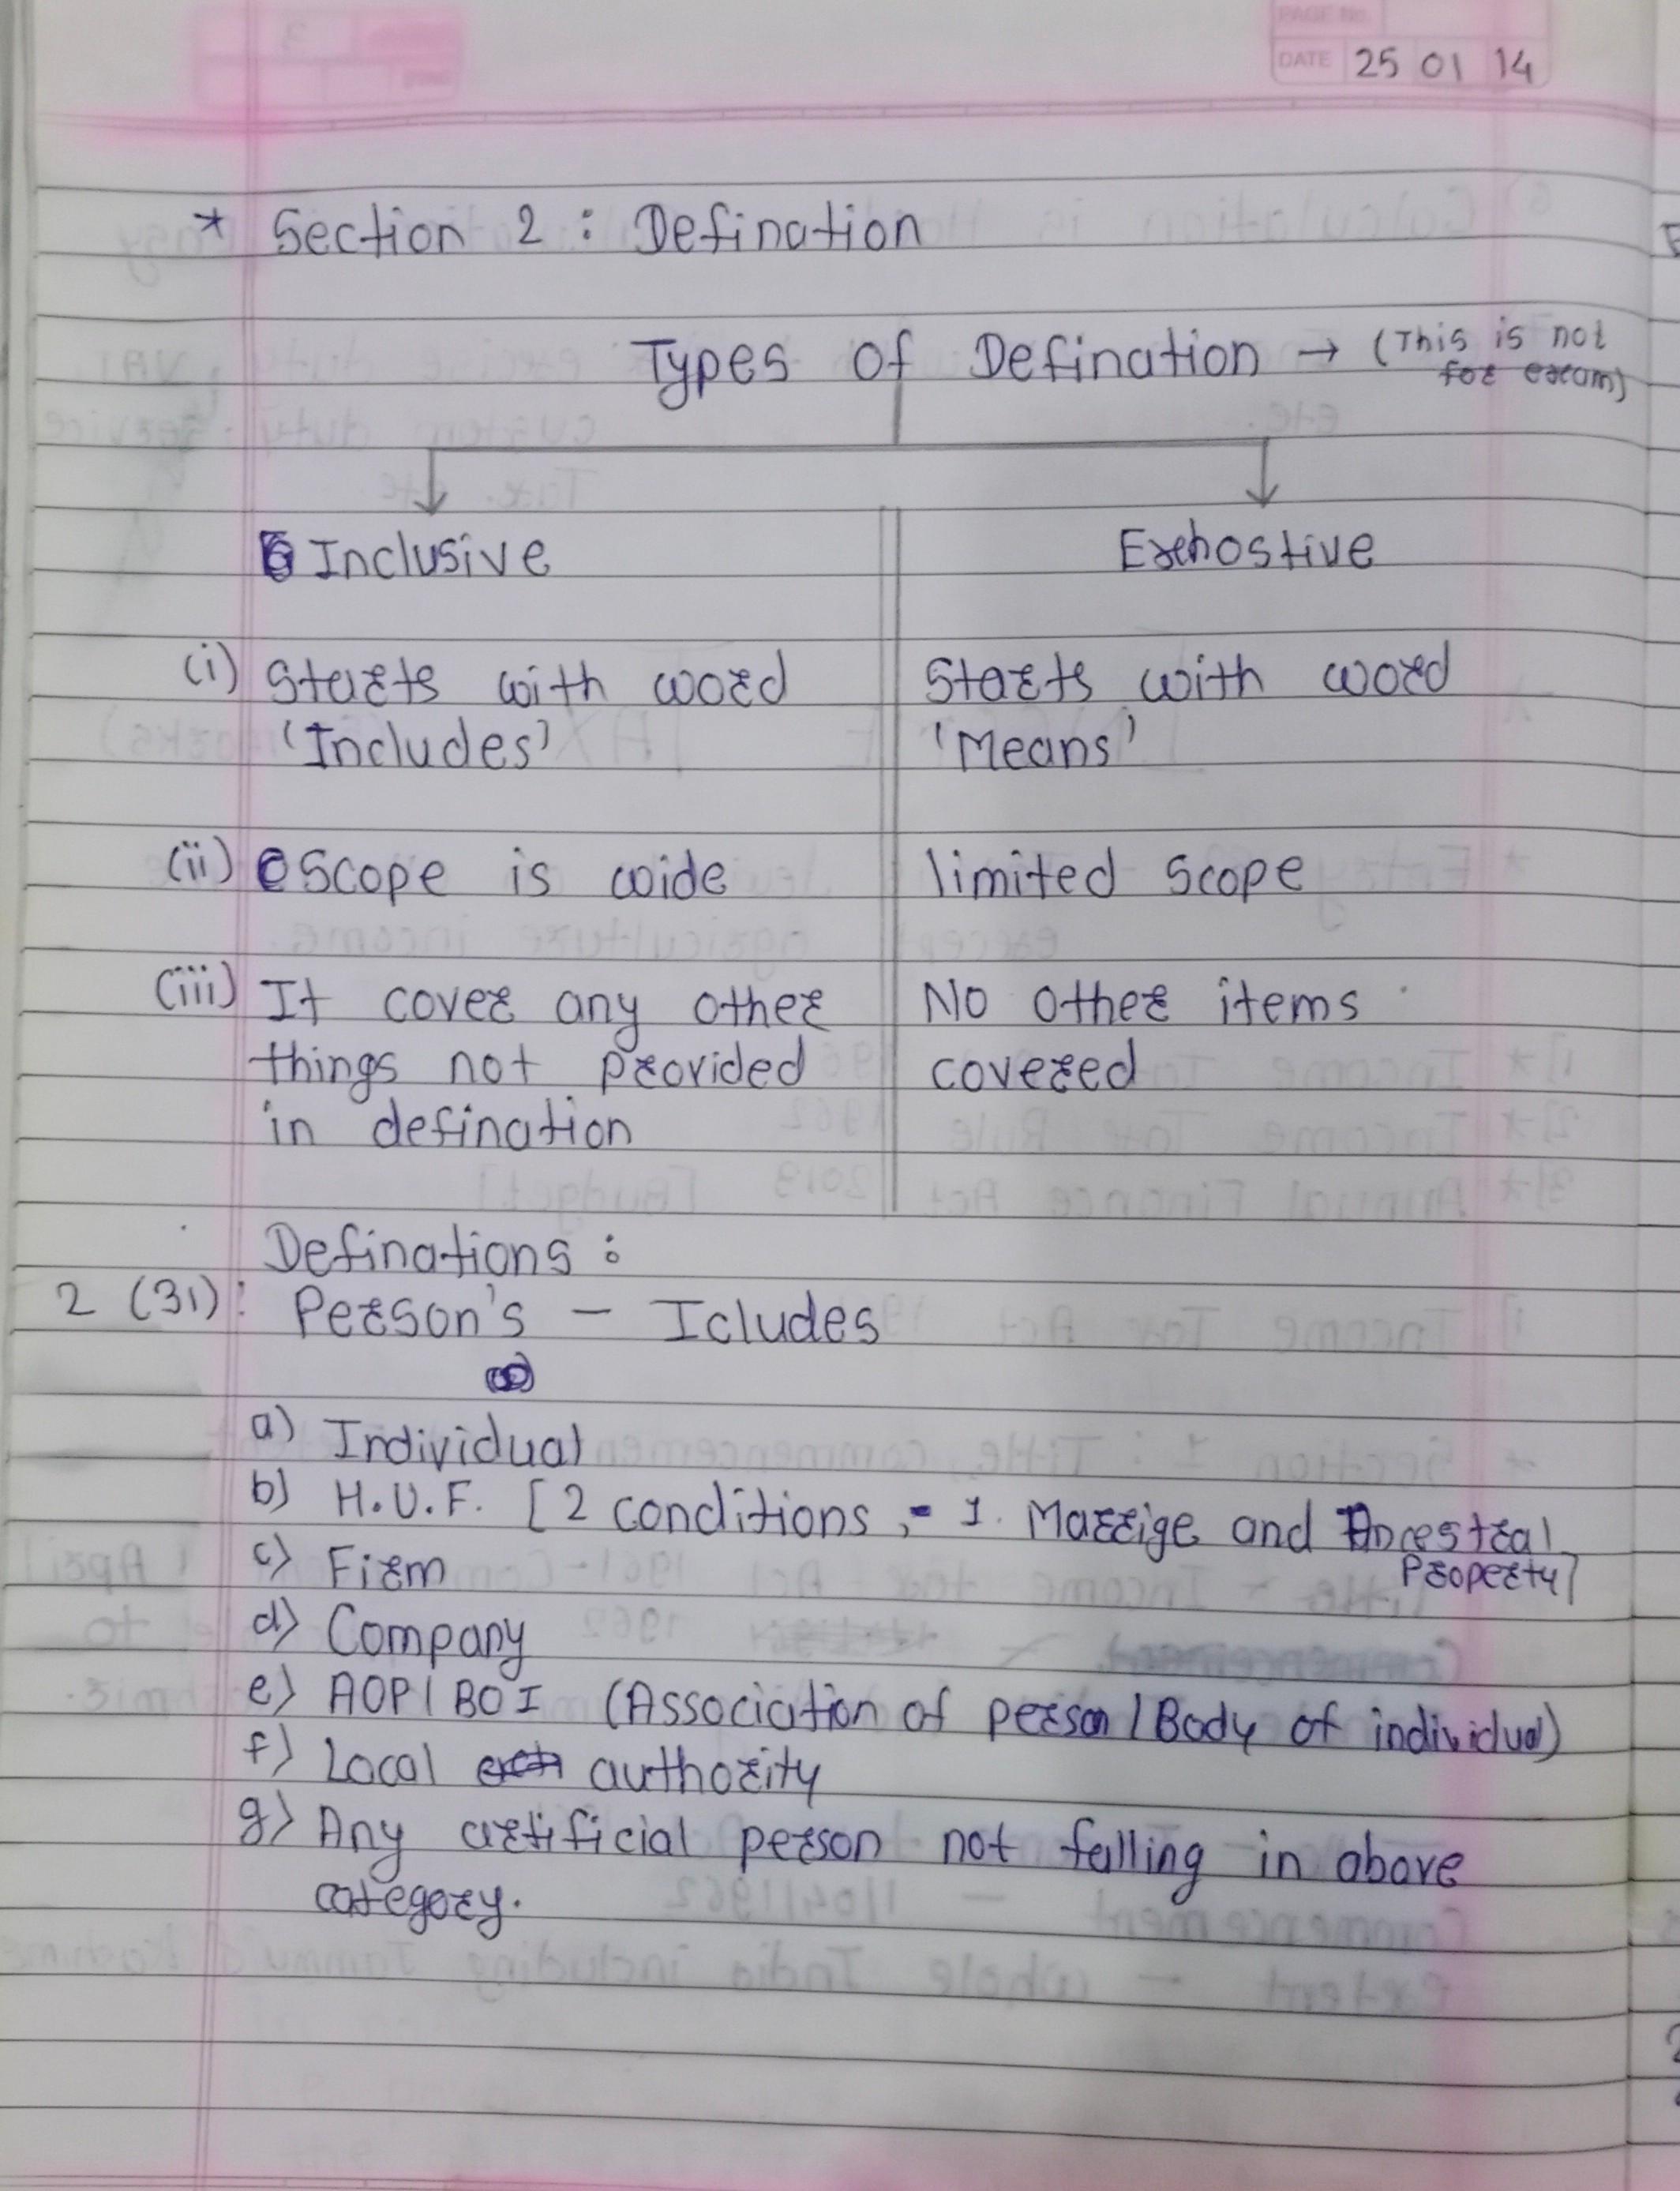 PAGE No.
DATE 25 01 14
* Section 2 : Defination
Types of Defination → (This is not
for exam)
Inclusive Exhostive
(i) Starts with word Starts with word
'Includes' 'Means'
(ii) Scope is wide limited scope
(iii) It cover any other No other items
things not provided covered
in defination
Definations :
2 (31): Person's - Icludes
a) Individual
b) H.U.F. [2 conditions, - 1. Marrige and Ancestral
Property]
c) Firm
d) Company
e) AOP/BOI (Association of person / Body of individual)
f) Local authority
g) Any artificial person not falling in above
category.